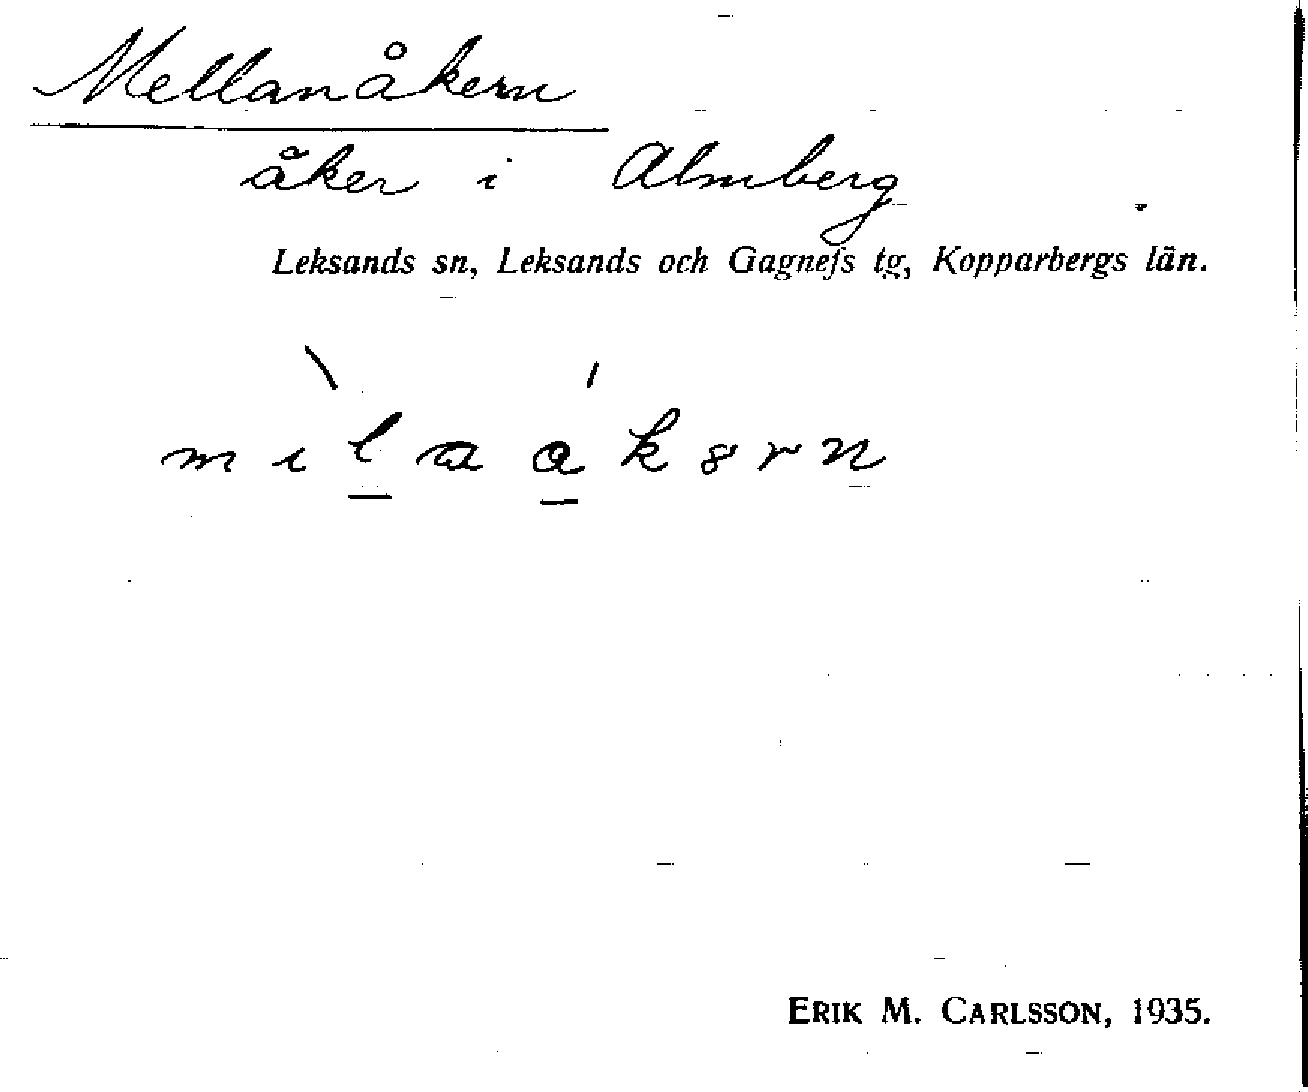 Mellanåkern
åker i Almberg
Leksands sn, Leksands och Gagnefs tg, Kopparbergs län.
mılaaksrn
ERIK M. CARLSSON, 1935.